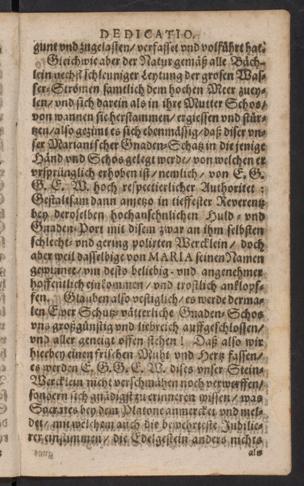 DEDICATIO.
gunt vnd zugelassen/ verfasset vnd volführt hat.
Gleichwie aber der Natur gemäß alle Bäch-
lein nechst schleuniger Leytung der grosen Was-
ser-Strömen samelich dem hochen Meer zuey-
len/ vnd sich darein als in ihre Mutter Schos/
von wannen sie herstammen/ ergiessen vnd stür-
tzen/ also gezimt es sich ebenmässig/ daß diser vn-
ser Marianischer Gnaden-Schatz in die jenige
Händ vnd Schos gelegt werde/ von welchen er
vrsprünglich erhoben ist/ nemlich/ von E. G.
G. E. W. hoch respectierlicher Authoritet:
Gestaltsam dann anjetzo in tieffester Reverentz
bey deroselben hochansehnlichen Huld- vnd
Gnaden-Port mit disem zwar an ihm selbsten
schlecht- vnd gering polirten Wercklein/ doch
aber weil dasselbige von MARIA seinen Namen
gewinnet/ vm desto beliebig- vnd angenehmer
hoffentlich einkommen/ vnd trostlich anklopf-
fen. Glauben also vestiglich/ es werde derma-
len Ewer Schutz-vätterliche Gnaden-Schos
vns großgünstig vnd liebreich auffgeschlossen/
vnd aller geneigt offen stehen! Daß also wir
hierbey einen frischen Muht vnd Hertz fassen/
es werden E. G. G. E. W. dises vnser Stein-
Wercklein nicht verschmähen noch verwerffen/
sondern sich gnädigst zu erinneren wissen/ was
Socrates bey dem Platone anmercket vnd mel-
det/ mit welchem auch die bewehrteste Jubilie-
rer einstimmen/ die Edelgestein anders nichts
als